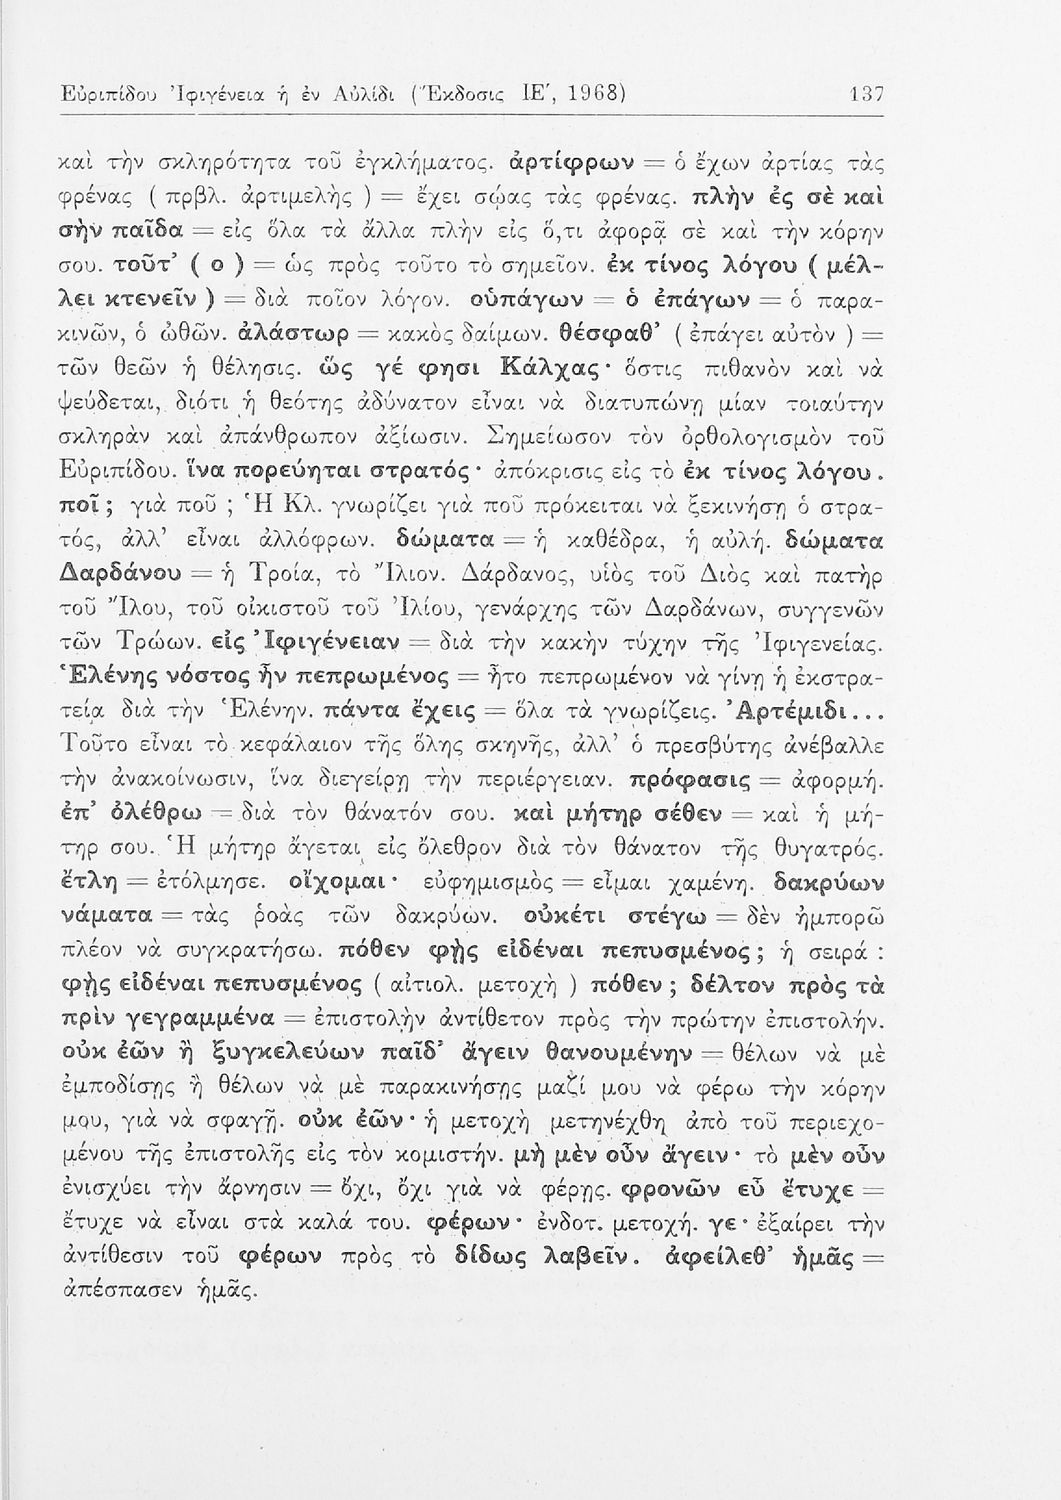 Εὐριπίδου Ἰφιγένεια ἡ ἐν Αὐλίδι ( Ἔκδοσις ΙΕ΄, 1968) 137
καὶ τὴν σκληρότητα τοῦ ἐγκλήματος. ἀρτίφρων = ὁ ἔχων ἀρτίας τὰς
φρένας ( πρβλ. ἀρτιμελὴς ) = ἔχει σῴας τὰς φρένας. πλὴν ἐς σὲ καὶ
σὴν παῖδα = εἰς ὅλα τὰ ἄλλα πλὴν εἰς ὅ,τι ἀφορᾷ σὲ καὶ τὴν κόρην
σου. τοῦτ’ ( ο ) = ὡς πρὸς τοῦτο τὸ σημεῖον. ἐκ τίνος λόγου ( μέλ-
λει κτενεῖν ) = διὰ ποῖον λόγον. οὑπάγων = ὁ ἐπάγων = ὁ παρα-
κινῶν, ὁ ὠθῶν. ἀλάστωρ = κακὸς δαίμων. θέσφαθ’ ( ἐπάγει αὐτὸν ) =
τῶν θεῶν ἡ θέλησις. ὥς γέ φησι Κάλχας· ὅστις πιθανὸν καὶ νὰ
ψεύδεται, διότι ἡ θεότης ἀδύνατον εἶναι νὰ διατυπώνῃ μίαν τοιαύτην
σκληρὰν καὶ ἀπάνθρωπον ἀξίωσιν. Σημείωσον τὸν ὀρθολογισμὸν τοῦ
Εὐριπίδου. ἵνα πορεύηται στρατός· ἀπόκρισις εἰς τὸ ἐκ τίνος λόγου.
ποῖ; γιὰ ποῦ ; Ἡ Κλ. γνωρίζει γιὰ ποῦ πρόκειται νὰ ξεκινήσῃ ὁ στρα-
τός, ἀλλ’ εἶναι ἀλλόφρων. δώματα = ἡ καθέδρα, ἡ αὐλή. δώματα
Δαρδάνου = ἡ Τροία, τὸ Ἴλιον. Δάρδανος, υἱὸς τοῦ Διὸς καὶ πατὴρ
τοῦ Ἴλου, τοῦ οἰκιστοῦ τοῦ Ἰλίου, γενάρχης τῶν Δαρδάνων, συγγενῶν
τῶν Τρώων. εἰς Ἰφιγένειαν = διὰ τὴν κακὴν τύχην τῆς Ἰφιγενείας.
Ἑλένης νόστος ἦν πεπρωμένος = ἦτο πεπρωμένον νὰ γίνῃ ἡ ἐκστρα-
τεία διὰ τὴν Ἑλένην. πάντα ἔχεις = ὅλα τὰ γνωρίζεις. Ἀρτέμιδι...
Τοῦτο εἶναι τὸ κεφάλαιον τῆς ὅλης σκηνῆς, ἀλλ’ ὁ πρεσβύτης ἀνέβαλλε
τὴν ἀνακοίνωσιν, ἵνα διεγείρῃ τὴν περιέργειαν. πρόφασις = ἀφορμή.
ἐπ’ ὀλέθρω = διὰ τὸν θάνατόν σου. καὶ μήτηρ σέθεν = καὶ ἡ μή-
τηρ σου. Ἡ μήτηρ ἄγεται εἰς ὄλεθρον διὰ τὸν θάνατον τῆς θυγατρός.
ἔτλη = ἐτόλμησε. οἴχομαι· εὐφημισμὸς = εἶμαι χαμένη. δακρύων
νάματα = τὰς ῥοὰς τῶν δακρύων. οὐκέτι στέγω = δὲν ἠμπορῶ
πλέον νὰ συγκρατήσω. πόθεν φῂς εἰδέναι πεπυσμένος; ἡ σειρά :
φῂς εἰδέναι πεπυσμένος ( αἰτιολ. μετοχὴ ) πόθεν; δέλτον πρὸς τὰ
πρὶν γεγραμμένα = ἐπιστολὴν ἀντίθετον πρὸς τὴν πρώτην ἐπιστολήν.
οὐκ ἐῶν ἢ ξυγκελεύων παῖδ’ ἄγειν θανουμένην = θέλων νὰ μὲ
ἐμποδίσῃς ἢ θέλων νὰ μὲ παρακινήσῃς μαζί μου νὰ φέρω τὴν κόρην
μου, γιὰ νὰ σφαγῇ. οὐκ ἐῶν· ἡ μετοχὴ μετηνέχθη ἀπὸ τοῦ περιεχο-
μένου τῆς ἐπιστολῆς εἰς τὸν κομιστήν. μὴ μὲν οὖν ἄγειν· τὸ μὲν οὖν
ἐνισχύει τὴν ἄρνησιν = ὄχι, ὄχι γιὰ νὰ φέρῃς. φρονῶν εὖ ἔτυχε =
ἔτυχε νὰ εἶναι στὰ καλά του. φέρων· ἐνδοτ. μετοχή. γε· ἐξαίρει τὴν
ἀντίθεσιν τοῦ φέρων πρὸς τὸ δίδως λαβεῖν. ἀφείλεθ’ ἡμᾶς =
ἀπέσπασεν ἡμᾶς.